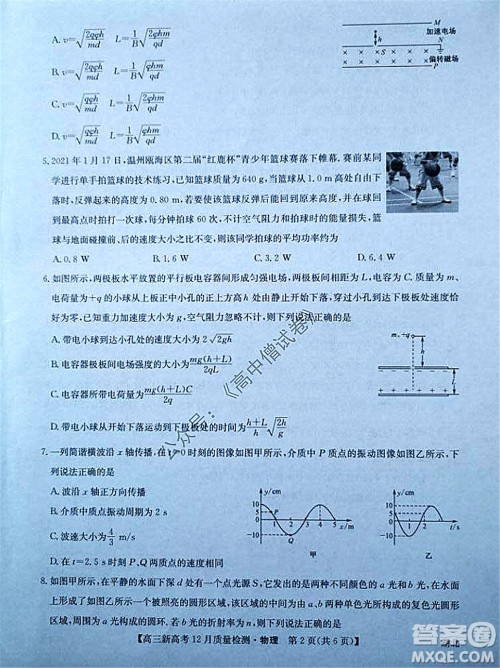 A. v=√(2qφh/md) L=1/B √(2φm/qd)
M
加速电场
h
N
B. v=√(2qφh/md) L=1/B √(φm/qd)
偏转磁场
P
C. v=√(qφh/md) L=1/B √(2φm/qd)
D. v=√(qφh/md) L=1/B √(φm/qd)
5. 2021 年 1 月 17 日,温州瓯海区第二届“红鹿杯”青少年篮球赛落下帷幕. 赛前某同
学进行单手拍篮球的技术练习,已知篮球质量为 640 g,当篮球从 1.0 m 高处自由下
落,反弹起来的高度为 0.80 m. 若使该篮球反弹后能回到原来高度,并以此方式原
地在最高点时拍打一次球,每分钟拍球 60 次,不计空气阻力和拍球时消耗的能量,篮
球与地面碰撞前、后的速度大小之比不变,则该同学拍球的平均功率约为
A. 0.8 W B. 1.6 W C. 3.2 W D. 6.4 W
6. 如图所示,两极板水平放置的平行板电容器间形成匀强电场,两极板间相距为 L. 已知质量为 m、
电荷量为+q 的小球从上板正中小孔的正上方 h 处由静止开始下落,穿过小孔到达下板处速度恰
好为零. 小孔对电场的影响不计,重力加速度大小为 g,电容器电容为 C,空气阻力忽略不计,则下
列说法正确的是
A. 带电小球到达小孔处的速度大小为 2√2gh
B. 电容器极板间电场强度的大小为 mg(h+L)/2q
m +q
h
C. 电容器所带的电荷量为 mg(h+L)C/2q
L
D. 带电小球从开始下落运动到下极板处的时间为 h+L/h √(2h/g)
公众号:《高中僧试卷》
7. 一列简谐横波沿 x 轴传播,在 t=0 时刻的图像如图甲所示,介质中 P 质点的振动图像如图乙所示,下
列说法正确的是
A. 波沿 x 轴正方向传播
B. 介质中质点振动周期为 2 s
C. 波速大小为 4/3 m/s
D. 在 t=2.5 s 时刻 P、Q 两质点的速度相同
y/cm
10
5
P
0
2
4
x/m
-10
Q
甲
y/cm
10
0
2
4
t/s
-10
乙
8. 如图甲所示,在平静的水面下深 d 处有一个点光源 S,它发出的是两种不同颜色的 a 光和 b 光,在水
面上形成了一个被照亮的圆形区域,该区域的中间为由 a、b 两种单色光所构成的复色光圆形区域,
【高三新高考 12 月质量检测·物理 第 2 页(共 6 页)】
答案圈
MXQE.COM